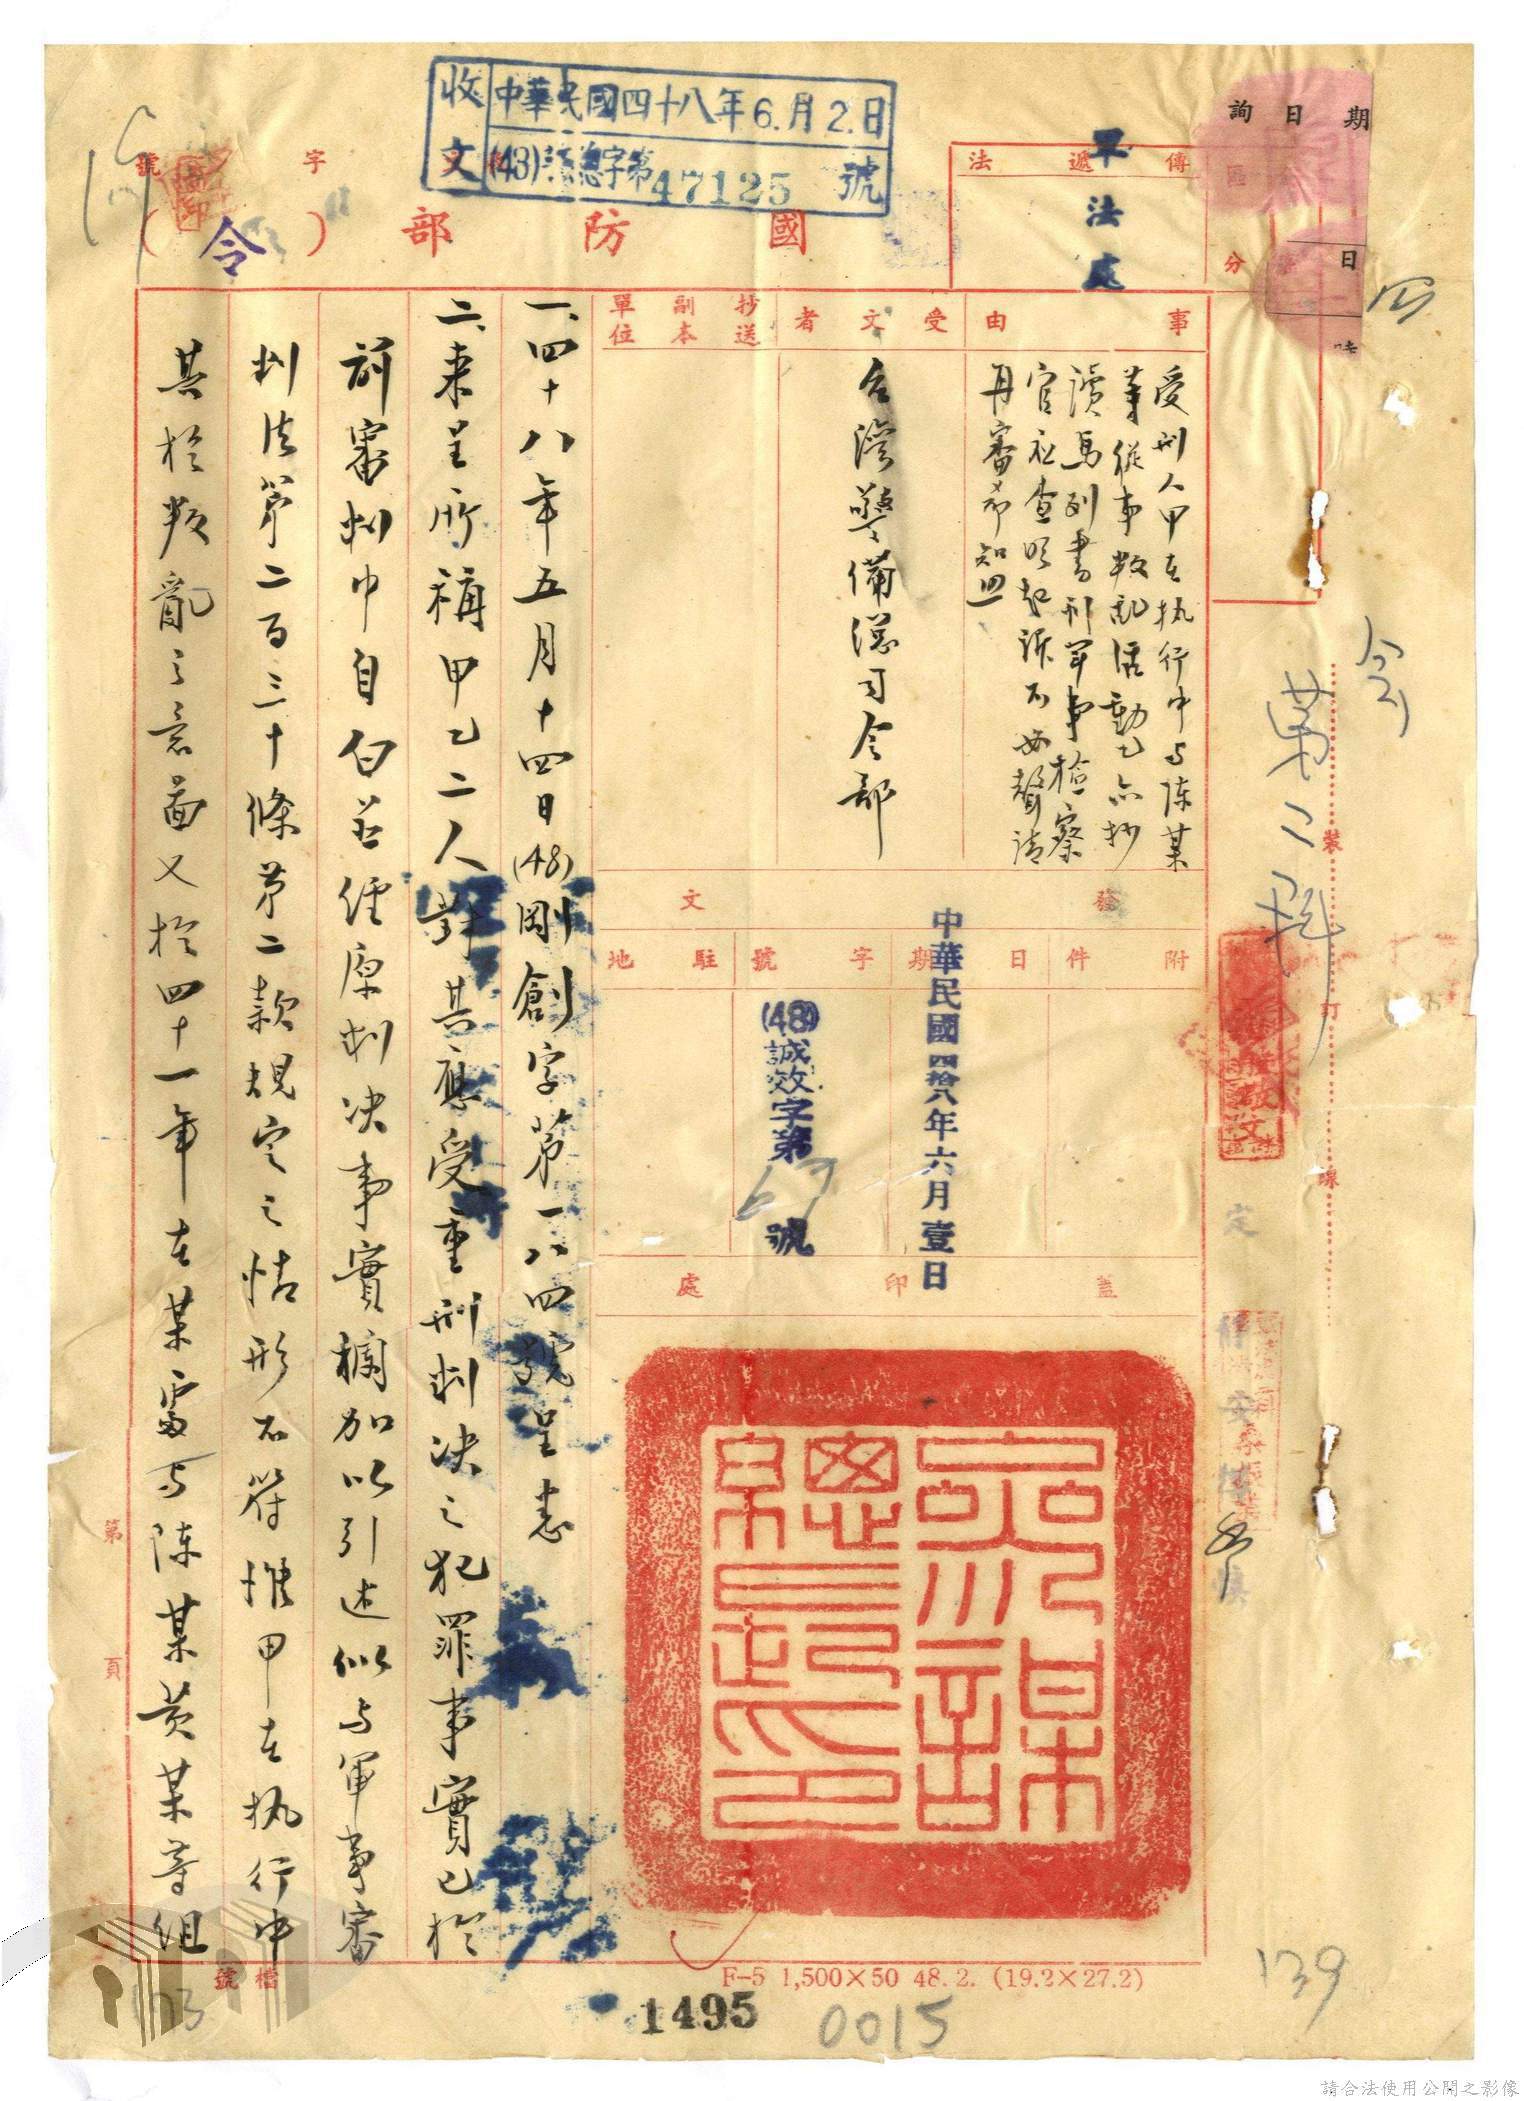 收文
中華民國四十八年6.月2.日
(48)謀總字第47125號
詢日期
區
日
分
時
傳遞法
軍法處
國防部(令)
字
號
事由
受刑人甲在執行中与陳某
等從事叛乱活動乙亦抄
讀馬列書刊軍事檢察
官社查明起訴不必聲請
再審希知照
受文者
台湾警備總司令部
抄送副本單位
發文
附件
日期
中華民國四拾八年六月壹日
字號
(48)誠效字第69號
駐地
蓋印處
參謀總長之印
一、四十八年五月十四日(48)剛創字第一八四號呈悉
二、来呈所稱甲乙二人對其應受重刑判决之犯罪事實已於
前審判中自白並經原判决事實欄加以引述似与軍事審
判法第二百三十條第二款規定之情形不符惟甲在执行中
其於叛亂之意啚又於四十一年在某處与陳某黄某等組
第
頁
檔號
裝
訂
線
四
令
第二科
139
F-5 1,500×50 48.2. (19.2×27.2)
1495
0015
請合法使用公開之影像